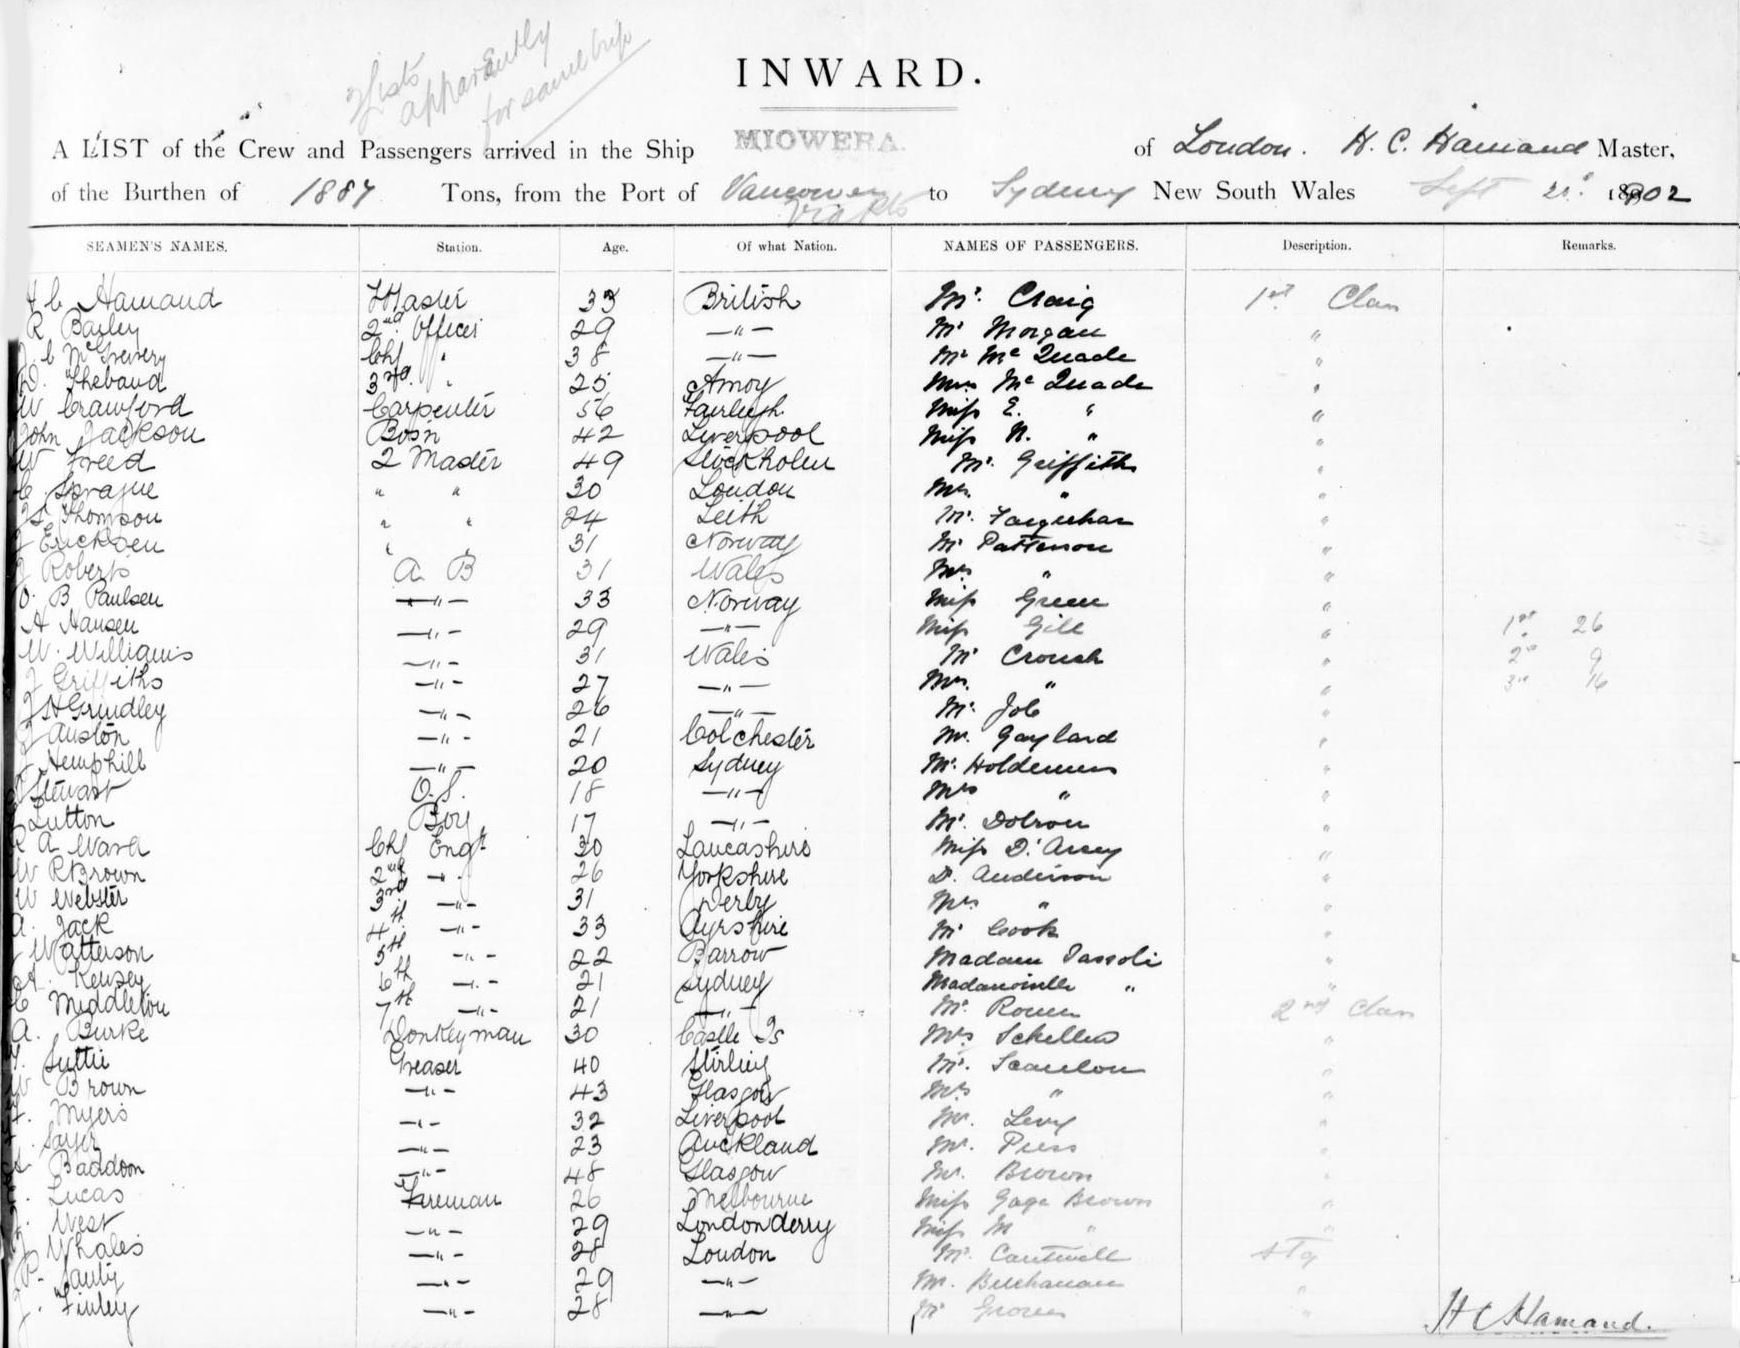 Lists
apparently
for same trip
INWARD.
A LIST of the Crew and Passengers arrived in the Ship MIOWERA. of London. H. C. Hamand Master,
of the Burthen of 1887 Tons, from the Port of Vancouver to Sydney New South Wales Sept 1902
via Pts
SEAMEN'S NAMES. Station. Age. Of what Nation. NAMES OF PASSENGERS. Description. Remarks.
H C Hamand Master 33 British Mr. Craig 1st Class
R Bayley 2nd Officer 29 —"— Mr Morgan "
C McGreivery Chf " 38 —"— Mr McQuade "
D. Thebaud 3rd. " 25 Amoy Mrs McQuade "
W Crawford Carpenter 56 Fairleigh Miss E. " "
John Jackson Bosn 42 Liverpool Miss N. " "
W Freed 2 Master 49 Stockholm Mr. Griffiths "
C. Sprague " " 30 London Mrs. " "
J S Thomson " " 24 Leith Mr. Farquhar "
J Ericksen " " 31 Norway Mr Patterson "
J Roberts A B 31 Wales Mrs " "
O. B Paulsen —"— 33 Norway Miss Green "
A Hansen —"— 29 —"— Miss Gill " 1st 26
W. Williams —"— 31 Wales Mr Crouch " 2nd 9
J Griffiths —"— 27 —"— Mrs. " " 3rd 16
J H Grindley —"— 26 —"— Mr. Job "
J Auston —"— 21 Colchester Mr. Gaylard "
J Hemphill —"— 20 Sydney Mr. Holdemess "
Stewart O.S. 18 —"— Mrs " "
Lutton Boy 17 —"— Mr. Dobson "
R A Ward Chf Engr 30 Lancashire Miss D'Arcy "
W R Brown 2nd —"— 26 Yorkshire Dr. Anderson "
W Webster 3rd —"— 31 Derby Mrs " "
A. Jack 4th —"— 33 Ayrshire Mr Cook "
J Watterson 5th —"— 22 Barrow Madam "
A. Kensey 6th —"— 21 Sydney Madamoiselle " "
C Middleton 7th —"— 21 —"— Mr. Rouen 2nd Class
A. Burke Donkeyman 30 Castle Is Mrs Schellens "
T. Suttie Greaser 40 Stirling Mr. Scanlon "
W Brown —"— 43 Glasgow Mrs " "
F. Myers —"— 32 Liverpool Mr. Levy "
F. Sayer —"— 23 Auckland Mr. Press "
A Baddoon —"— 48 Glasgow Mr. Brown "
Lucas Fireman 26 Melbourne Miss Gage Brown "
J. West —"— 29 Londonderry Miss M " "
J Whales —"— 28 London Mr. Cantwell Stg
P. Sauty —"— 29 —"— Mr. Buchanan "
J. Finley —"— 28 —"— Mr Groves "
H C Hamand.